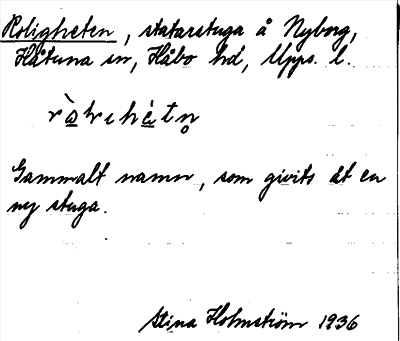 Roligheten, statarstuga å Nyborg,
Håtuna sn, Håbo hd, Upps. l.
Gammalt namn, som givits åt en
ny stuga.
Stina Holmström 1936